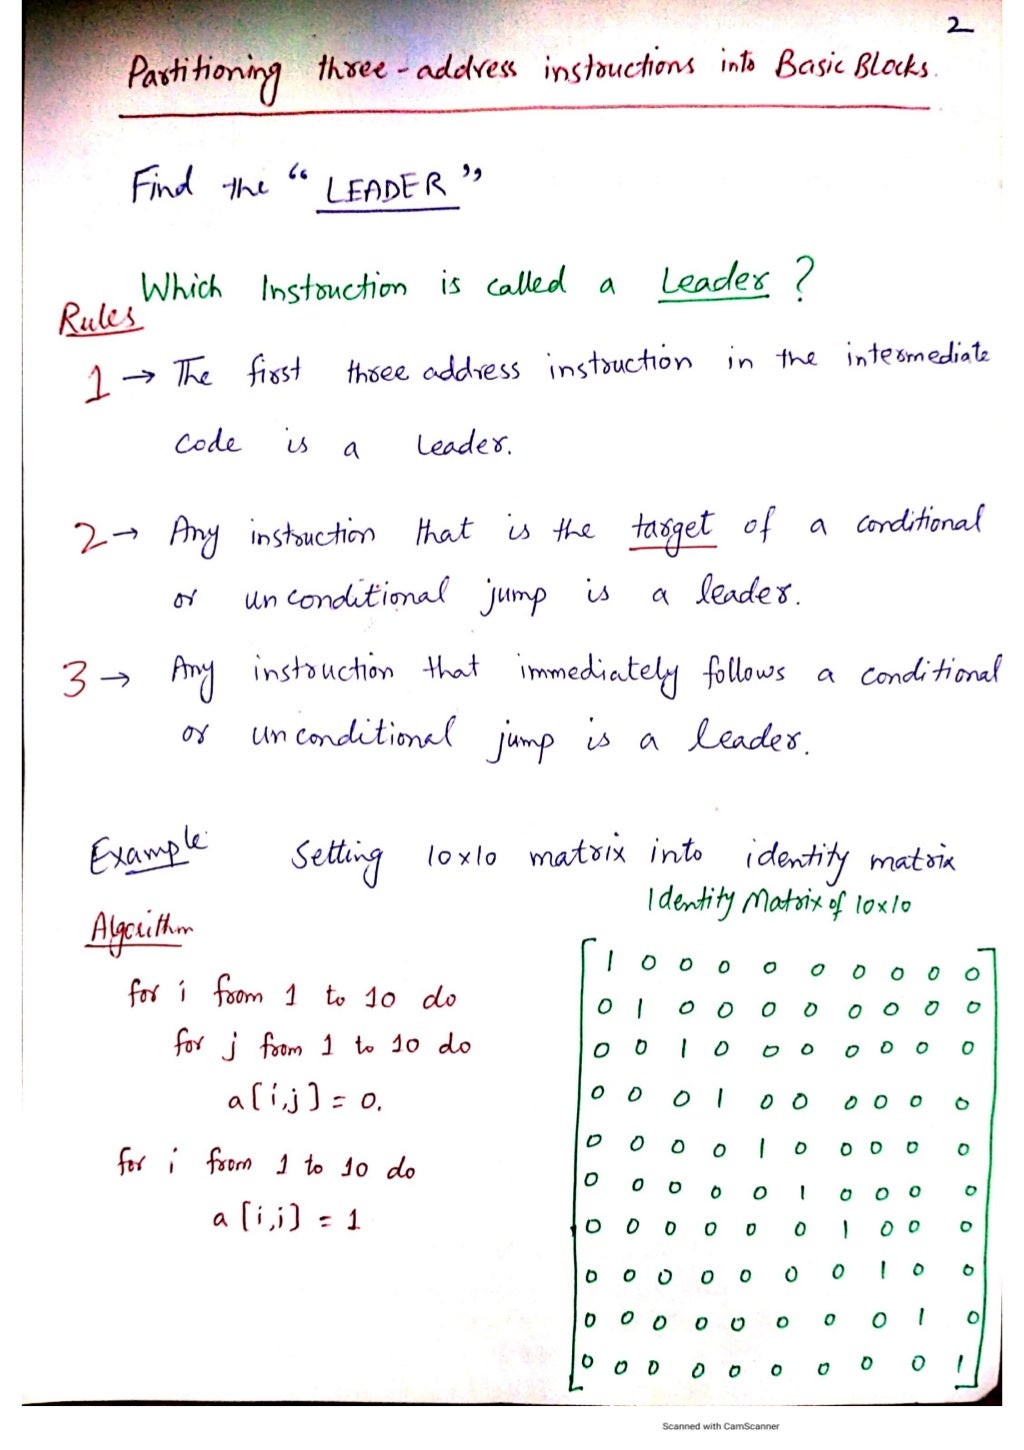 2
Partitioning three-address instructions into Basic Blocks.
Find the "LEADER"
Which Instruction is called a Leader ?
Rules
1 → The first three address instruction in the intermediate
code is a leader.
2 → Any instruction that is the target of a conditional
or unconditional jump is a leader.
3 → Any instruction that immediately follows a conditional
or unconditional jump is a leader.
Example: Setting 10x10 matrix into identity matrix
Identity Matrix of 10x10
Algorithm
for i from 1 to 10 do
for j from 1 to 10 do
a[i,j] = 0.
for i from 1 to 10 do
a[i,i] = 1
1 0 0 0 0 0 0 0 0 0
0 1 0 0 0 0 0 0 0 0
0 0 1 0 0 0 0 0 0 0
0 0 0 1 0 0 0 0 0 0
0 0 0 0 1 0 0 0 0 0
0 0 0 0 0 1 0 0 0 0
0 0 0 0 0 0 1 0 0 0
0 0 0 0 0 0 0 1 0 0
0 0 0 0 0 0 0 0 1 0
0 0 0 0 0 0 0 0 0 1
Scanned with CamScanner